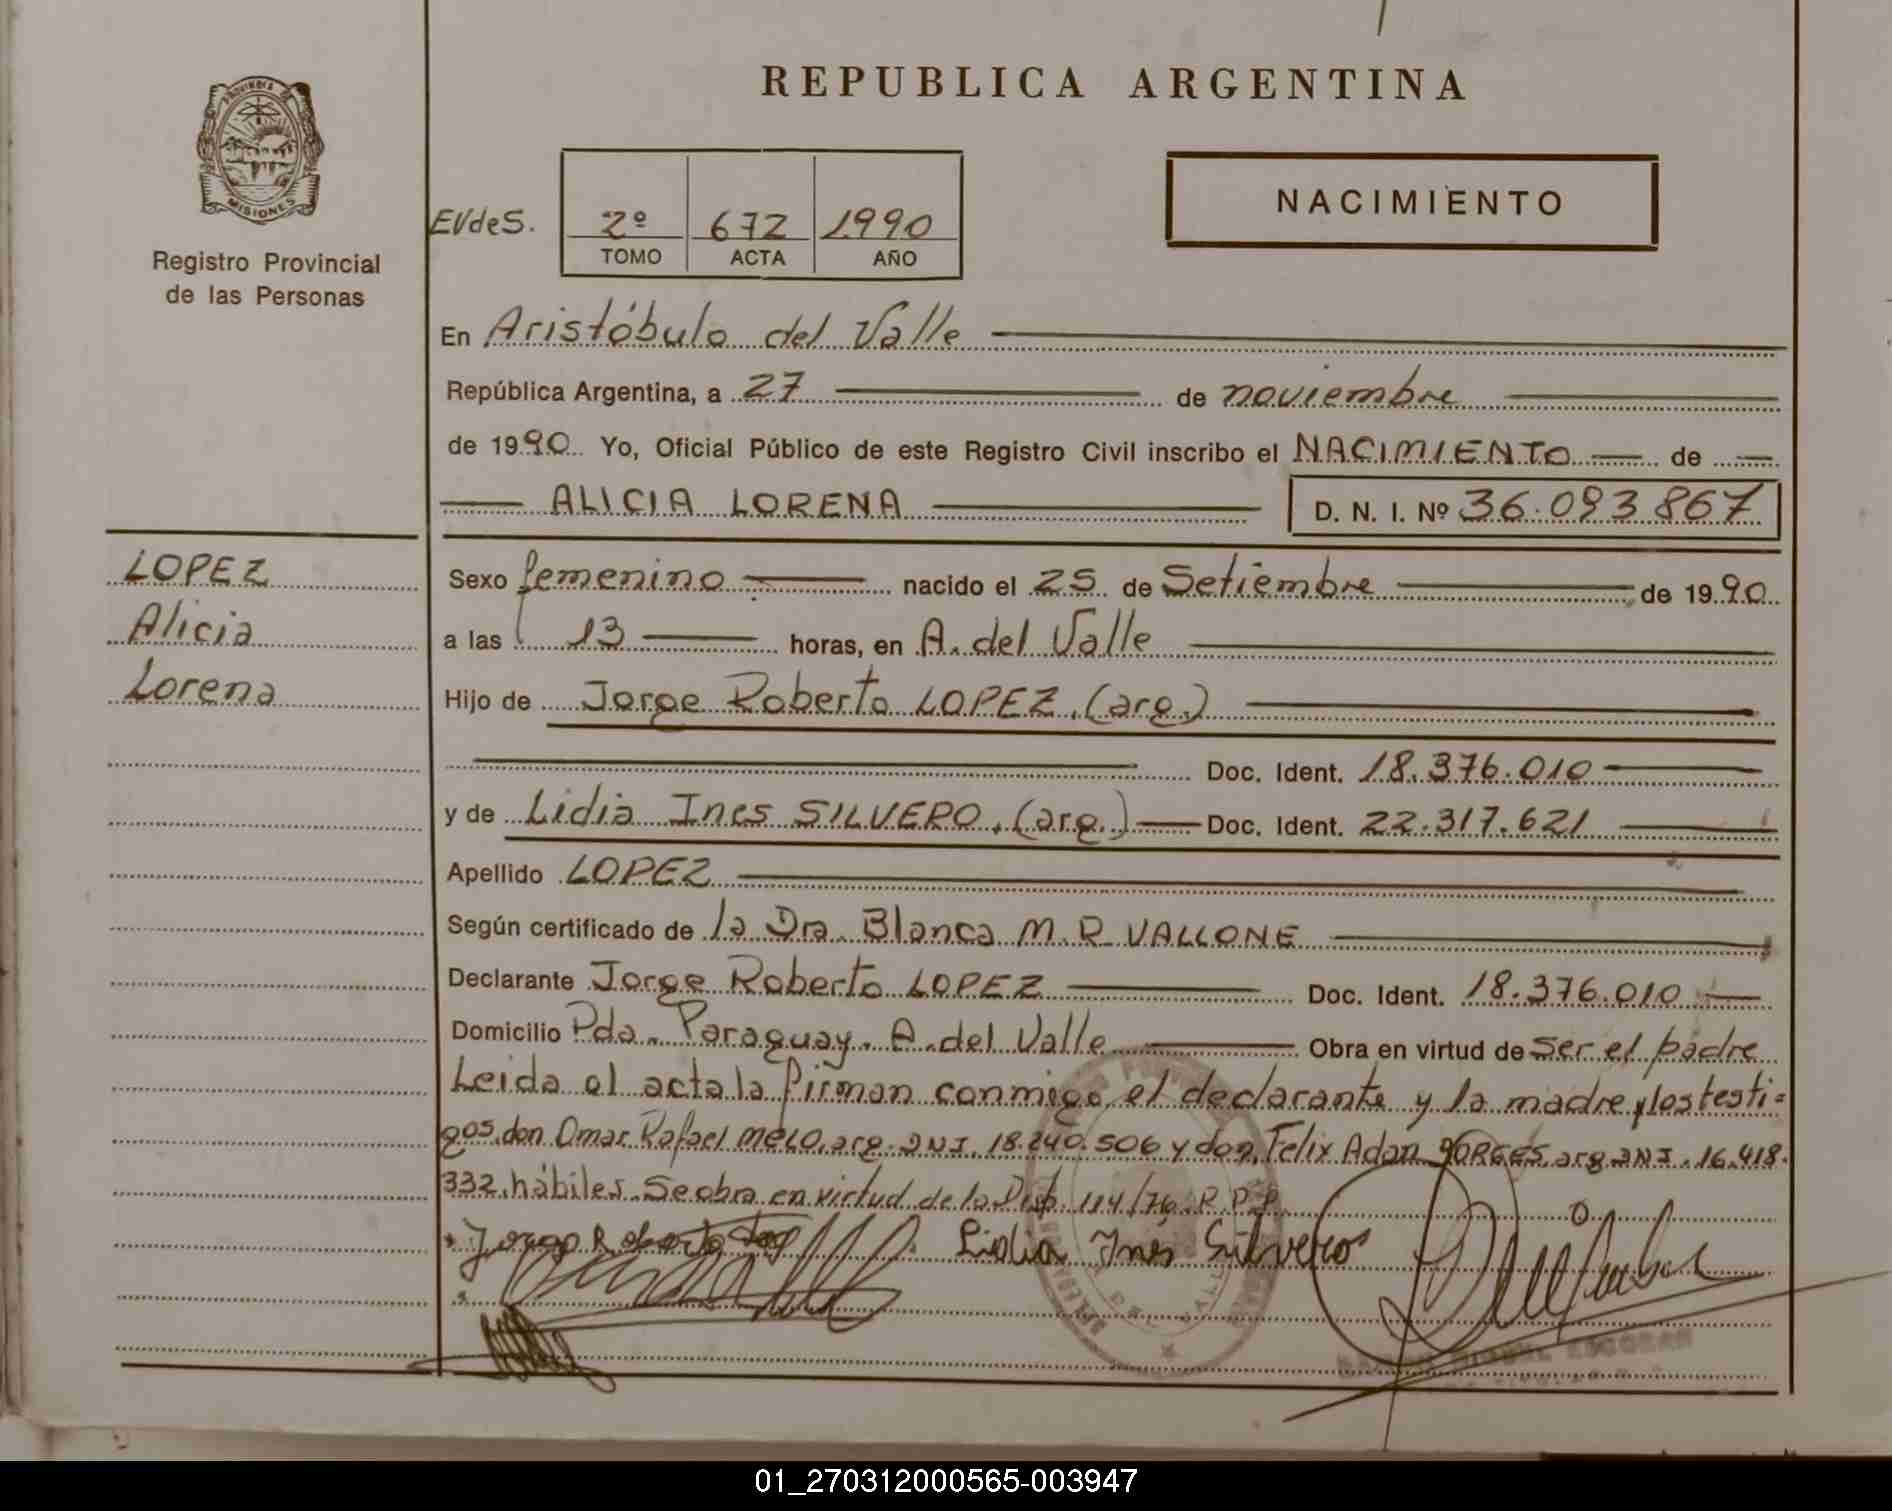 REPUBLICA ARGENTINA
PROVINCIA DE
MISIONES
Registro Provincial
de las Personas
NACIMIENTO
EVdeS.
2º 672 1990
TOMO ACTA AÑO
En Aristóbulo del Valle
República Argentina, a 27 de noviembre
de 1990 Yo, Oficial Público de este Registro Civil inscribo el NACIMIENTO de
ALICIA LORENA D. N. I. Nº 36.093.867
LOPEZ
Alicia
Lorena
Sexo femenino nacido el 25 de Setiembre de 1990
a las 13 horas, en A. del Valle
Hijo de Jorge Roberto LOPEZ, (arg.)
Doc. Ident. 18.376.010
y de Lidia Ines SILVERO, (arg.) Doc. Ident. 22.317.621
Apellido LOPEZ
Según certificado de la Dra. Blanca M. R VALLONE
Declarante Jorge Roberto LOPEZ Doc. Ident. 18.376.010
Domicilio Pda. Paraguay. A. del Valle Obra en virtud de ser el padre
Leida el acta la firman conmigo el declarante y la madre y los testi=
gos don Omar Rafael MELO, arg. DNI. 18.240.506 y don Felix Adan BORGES, arg DNI. 16.418.
332, hábiles. Se obra en virtud de la Disp. 114/76. R. P. P.
Jorge Roberto Lidia Inés Silvero
MIGUEL ESCOBAR
01_270312000565-003947